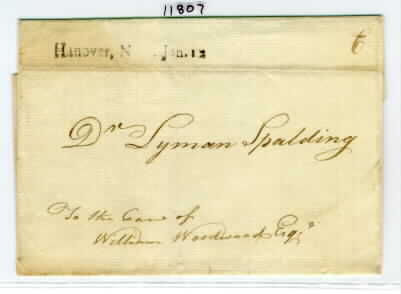 11807
Hanover, N Jan. 12
6
Dr Lyman Spalding
To the Care of
William Woodward Esqr